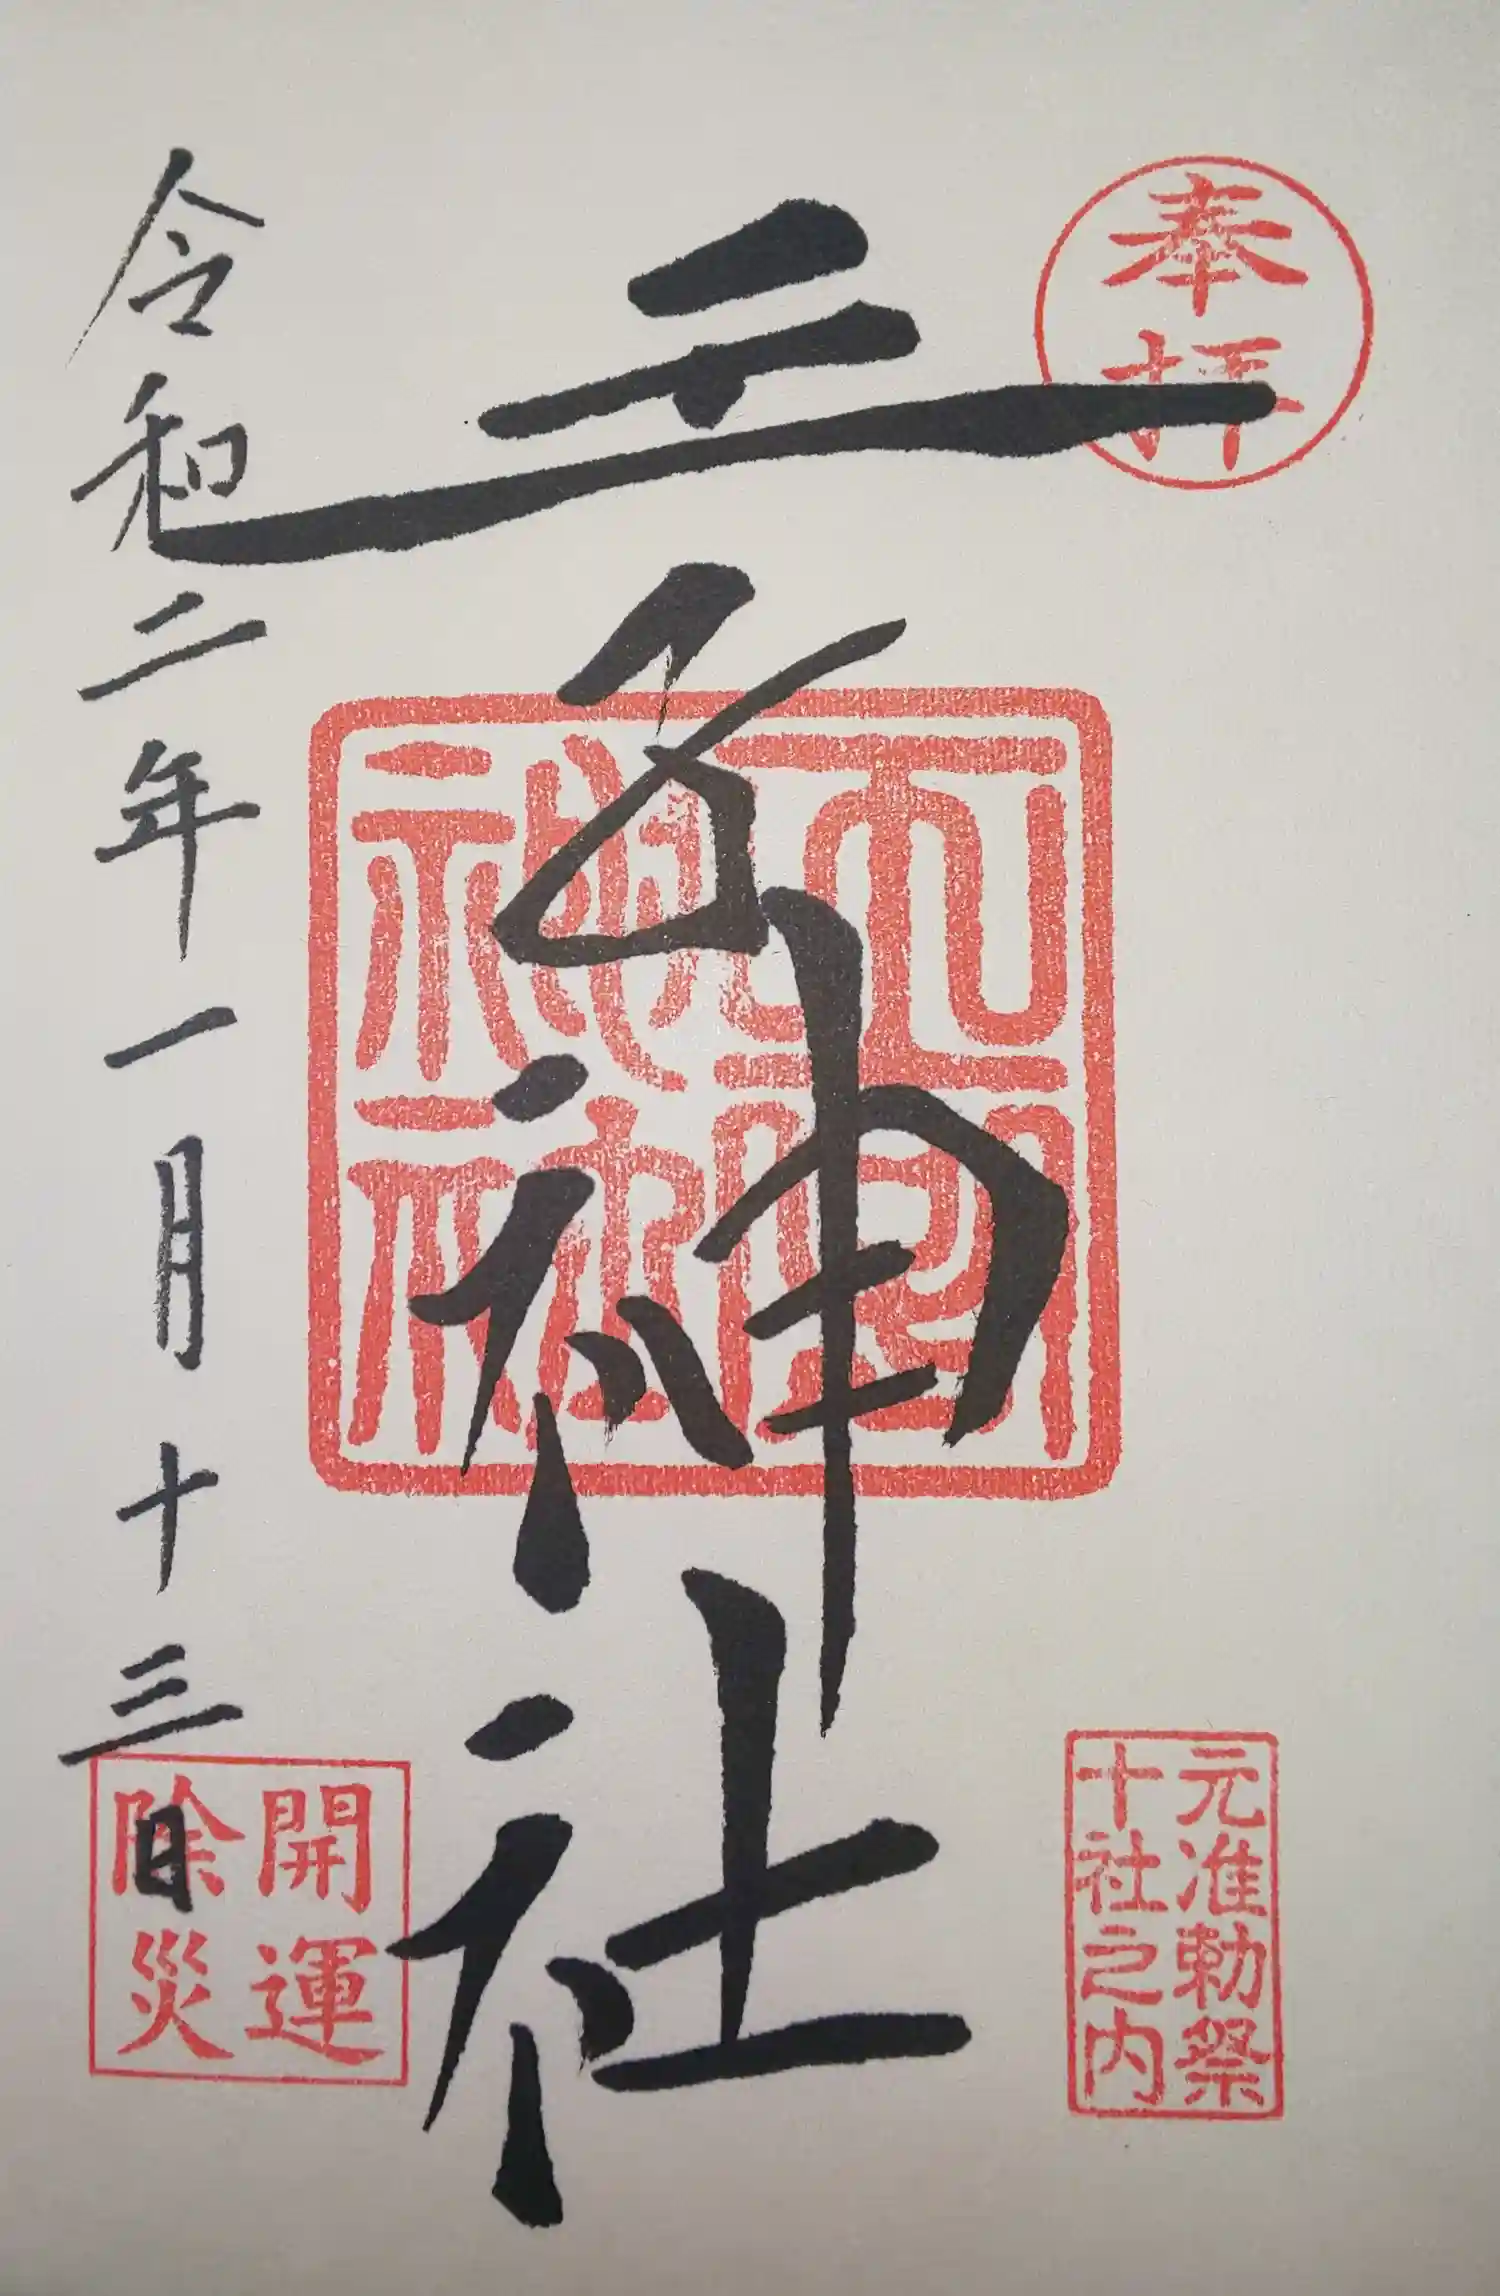 奉拝
元准勅祭
十社之内
王子神社
開運
除災
令和二年一月十三日